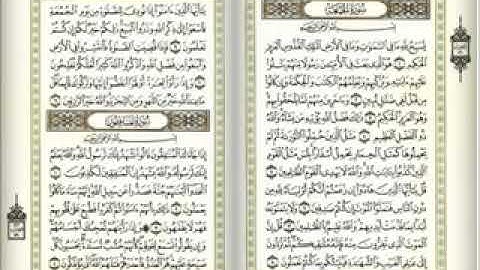 سُورَةُ الجُمُعَةِ
بسم الله الرحمن الرحيم
يسبح لله ما في السموت وما في الأرض الملك القدوس العزيز
الحكيم ۝ هو الذي بعث في الأميين رسولا منهم يتلوا
عليهم ءايته ويزكيهم ويعلمهم الكتب والحكمة وإن كانوا
من قبل لفي ضلل مبين ۝ وءاخرين منهم لما يلحقوا بهم
وهو العزيز الحكيم ۝ ذلك فضل الله يؤتيه من يشاء والله
ذو الفضل العظيم ۝ مثل الذين حملوا التورىة ثم لم
يحملوها كمثل الحمار يحمل أسفارا بئس مثل القوم
الذين كذبوا بءايت الله والله لا يهدي القوم الظلمين ۝
قل يأيها الذين هادوا إن زعمتم أنكم أولياء لله من
دون الناس فتمنوا الموت إن كنتم صدقين ۝ ولا يتمنونه
أبدا بما قدمت أيديهم والله عليم بالظلمين ۝ قل إن
الموت الذي تفرون منه فإنه ملقيكم ثم تردون
إلى علم الغيب والشهدة فينبئكم بما كنتم تعملون ۝
يأيها الذين ءامنوا إذا نودي للصلوة من يوم الجمعة
فاسعوا إلى ذكر الله وذروا البيع ذلكم خير لكم إن كنتم
تعلمون ۝ فإذا قضيت الصلوة فانتشروا في الأرض
وابتغوا من فضل الله واذكروا الله كثيرا لعلكم تفلحون
۝ وإذا رأوا تجرة أو لهوا انفضوا إليها وتركوك قائما قل
ما عند الله خير من اللهو ومن التجرة والله خير الرزقين ۝
سُورَةُ المُنَافِقُونَ
بسم الله الرحمن الرحيم
إذا جاءك المنفقون قالوا نشهد إنك لرسول الله والله يعلم
إنك لرسوله والله يشهد إن المنفقين لكذبون ۝
اتخذوا أيمنهم جنة فصدوا عن سبيل الله إنهم ساء ما كانوا
يعملون ۝ ذلك بأنهم ءامنوا ثم كفروا فطبع على قلوبهم
فهم لا يفقهون ۝ وإذا رأيتهم تعجبك أجسامهم